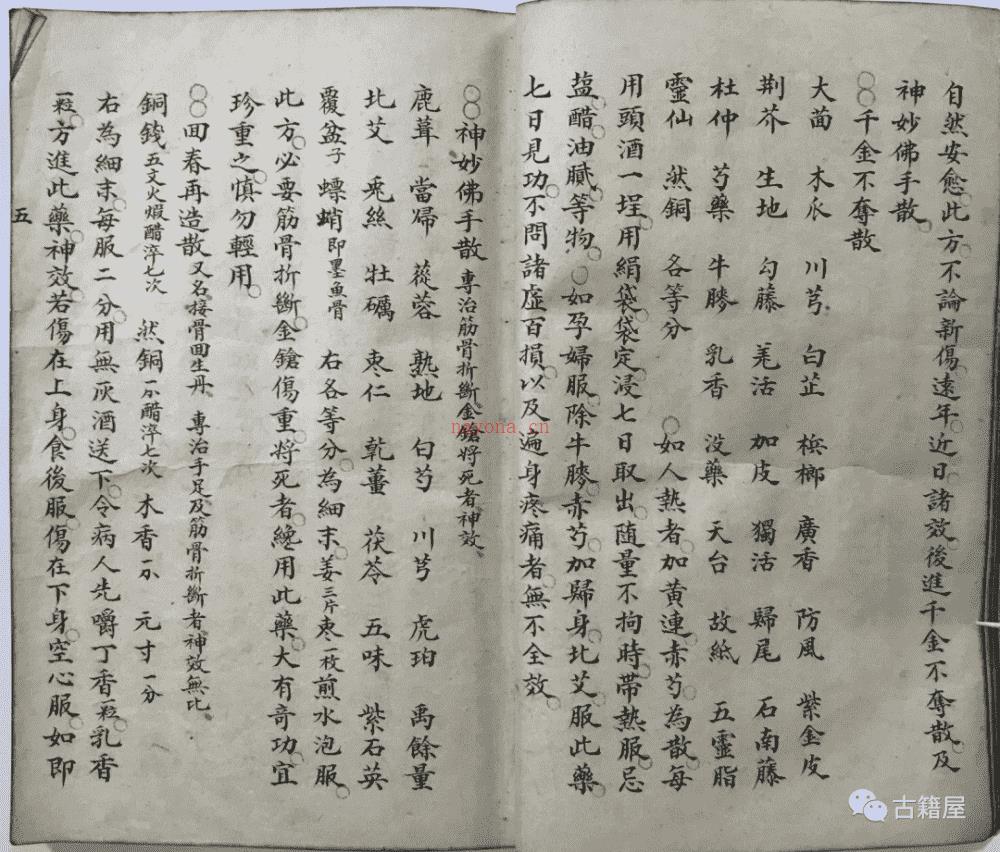 自然安愈此方不論新傷遠年近日諸效後進千金不奪散及
神妙佛手散
○○千金不奪散
大茴 木瓜 川芎 白芷 梹榔 廣香 防風 紫金皮
荆芥 生地 勾藤 羌活 加皮 獨活 歸尾 石南藤
杜仲 芍藥 牛膝 乳香 沒藥 天台 故紙 五靈脂
靈仙 然銅 各等分 ○如人熱者加黄連赤芍為散每
用頭酒一埕用絹袋袋定浸七日取出随量不拘時帶熱服忌
塩醋油膩等物○如孕婦服除牛膝赤芍加歸身北艾服此藥
七日見功不問諸虛百損以及遍身疼痛者無不全效
○○神妙佛手散 專治筋骨折斷金鎗將死者神效
鹿茸 當歸 蓯蓉 熟地 白芍 川芎 虎珀 禹餘量
北艾 兎絲 牡礪 枣仁 乾薑 茯苓 五味 紫石英
覆盆子 螵蛸即墨鱼骨 右各等分為細末姜三片枣一枚煎水泡服
此方必要筋骨折斷金鎗傷重將死者纔用此藥大有奇功宜
珍重之慎勿輕用
○○回春再造散 又名接骨回生丹 專治手足及筋骨折斷者神效無比
銅錢五文火煆醋淬七次 然銅一小醋淬七次 木香一小 元寸一分
右為細末每服二分用無灰酒送下令病人先嚼丁香一粒乳香
一粒方進此藥神效若傷在上身食後服傷在下身空心服如即
五
nayona.cn
古籍屋